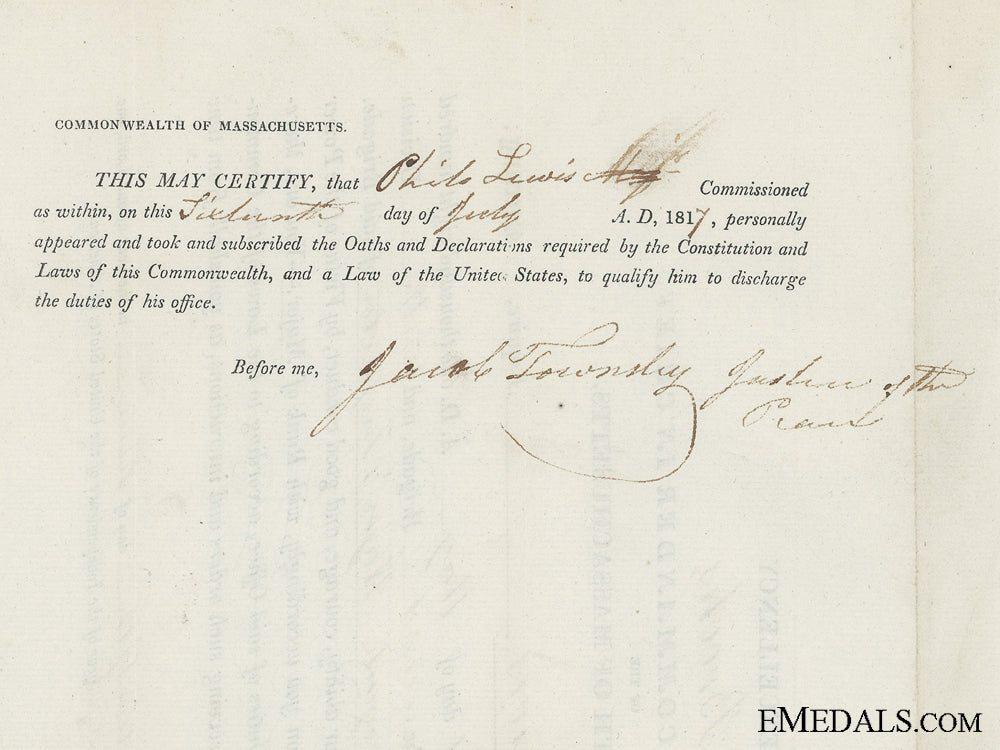 COMMONWEALTH OF MASSACHUSETTS.
THIS MAY CERTIFY, that Philo Lewis Commissioned
as within, on this Sixteenth day of July A. D, 1817, personally
appeared and took and subscribed the Oaths and Declarations required by the Constitution and
Laws of this Commonwealth, and a Law of the United States, to qualify him to discharge
the duties of his office.
Before me, Jacob Townsley Justice of the
Peace
EMEDALS.COM